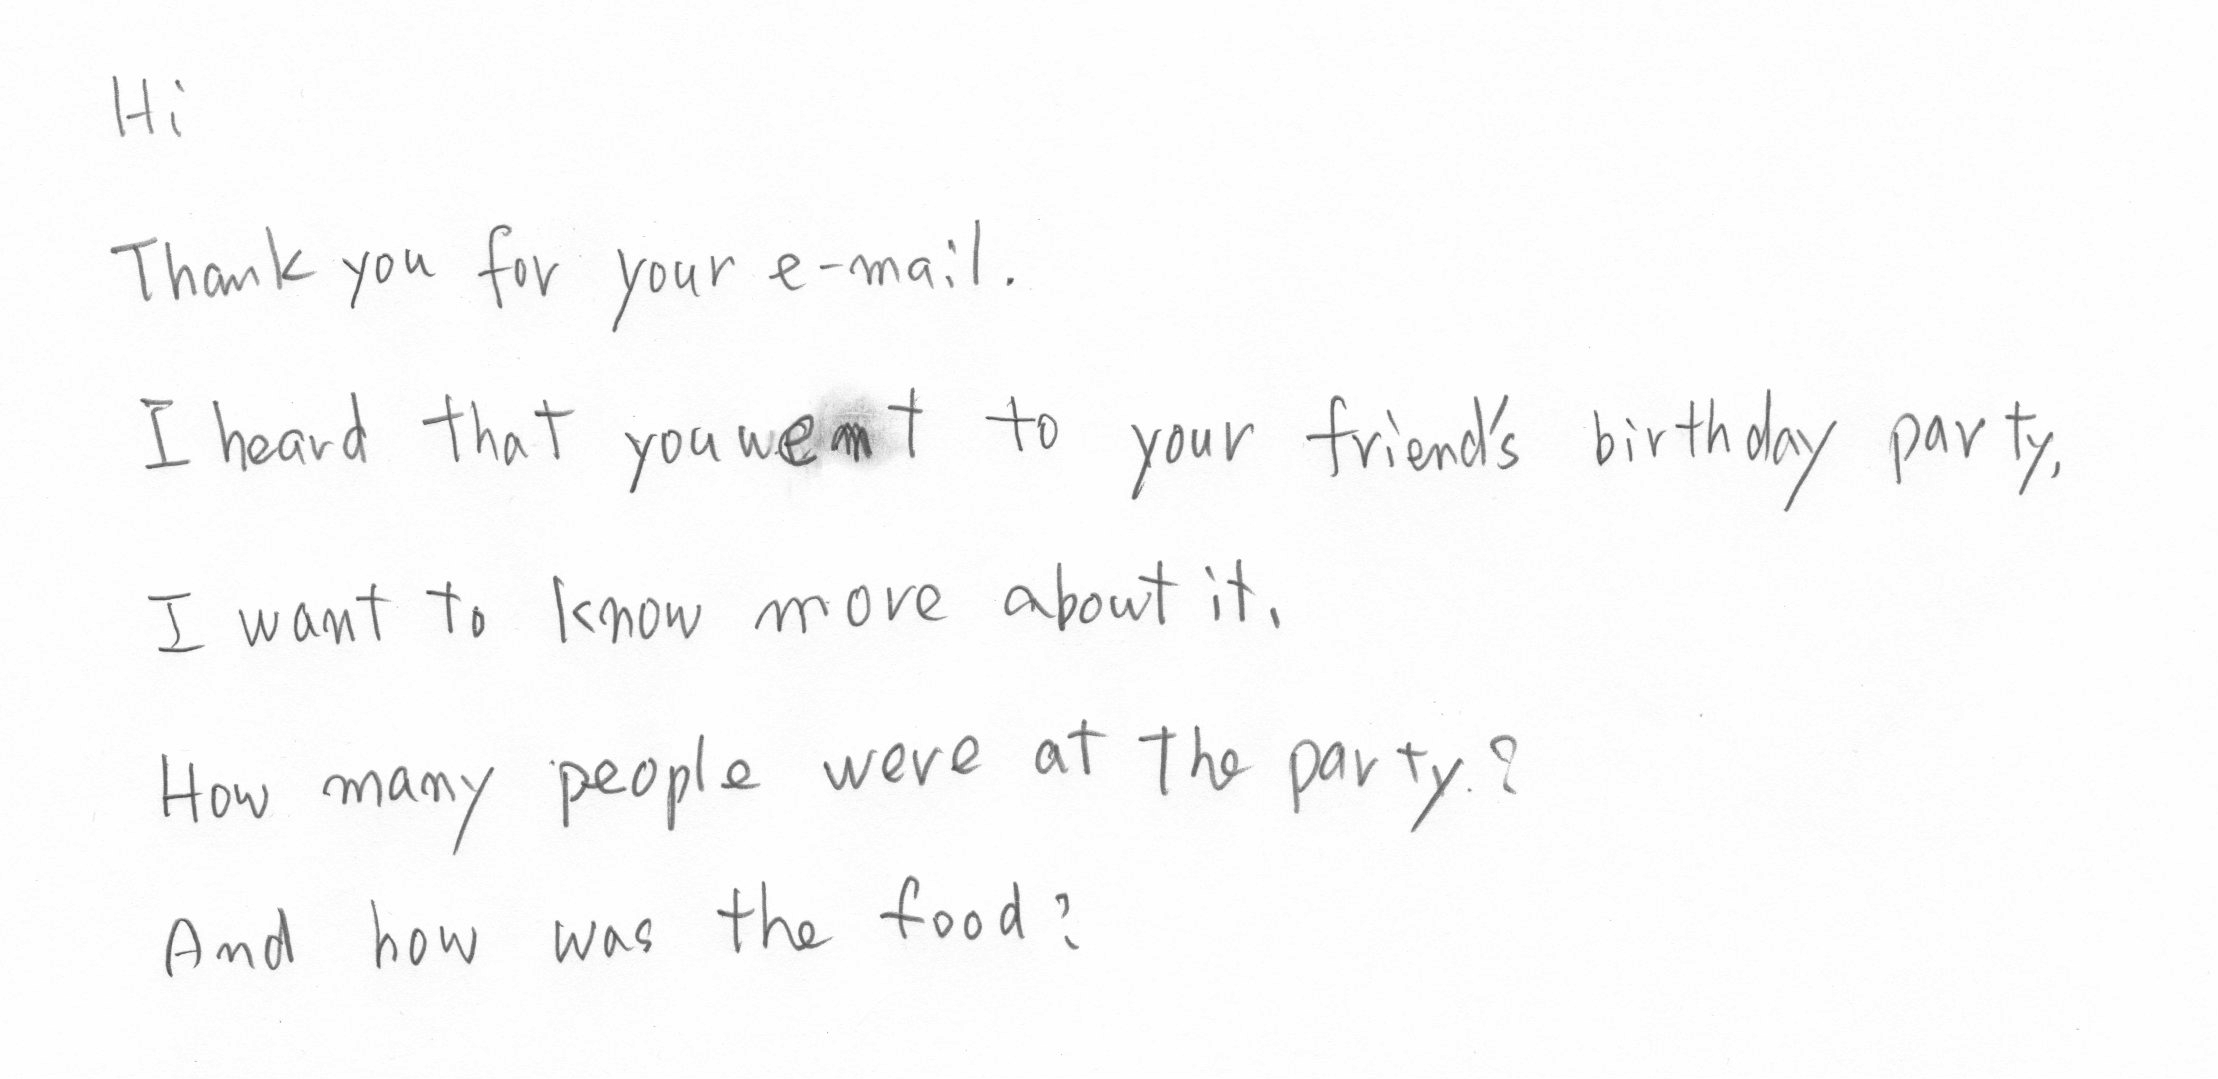 Hi
Thank you for your e-mail.
I heard that you went to your friend's birthday party,
I want to know more about it.
How many people were at the party.?
And how was the food?